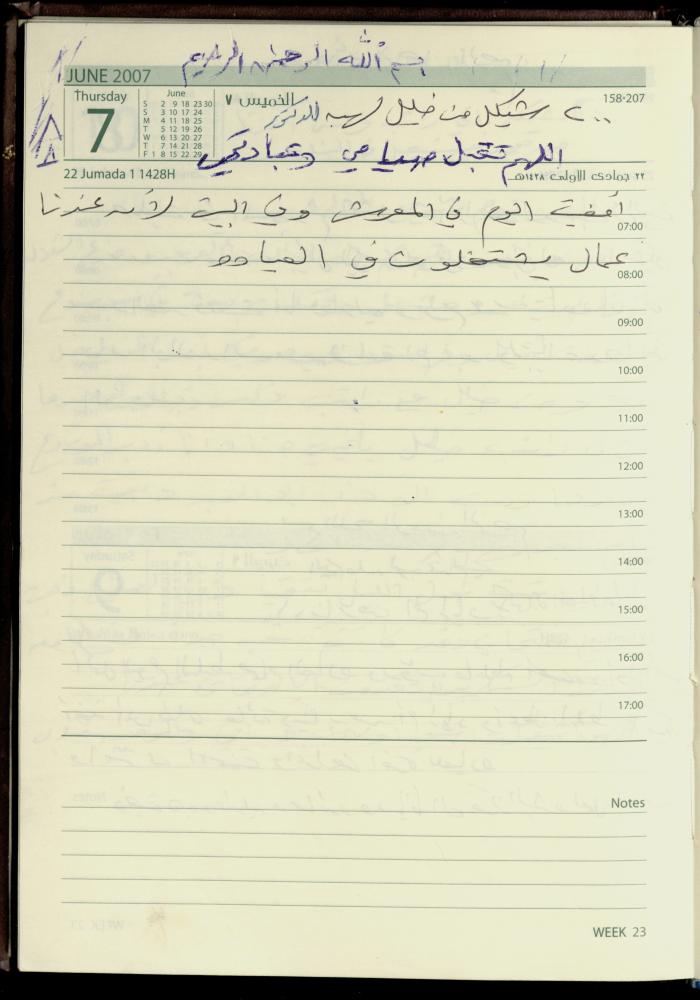 بسم الله الرحمن الرحيم
JUNE 2007
Thursday
7
June
S 2 9 16 23 30
S 3 10 17 24
M 4 11 18 25
T 5 12 19 26
W 6 13 20 27
T 7 14 21 28
F 1 8 15 22 29
الخميس ٧
158-207
٢٠٠ شيكل من خليل لهبه للدكتور
اللهم تقبل صيامي وعبادتي
22 Jumada 1 1428H
٢٢ جمادى الأولى ١٤٢٨هـ
أمضيت اليوم في المعرش وفي البيت لأنه عندنا
07:00
عمال يشتغلون في العيادة
08:00
09:00
10:00
11:00
12:00
13:00
14:00
15:00
16:00
17:00
Notes
WEEK 23